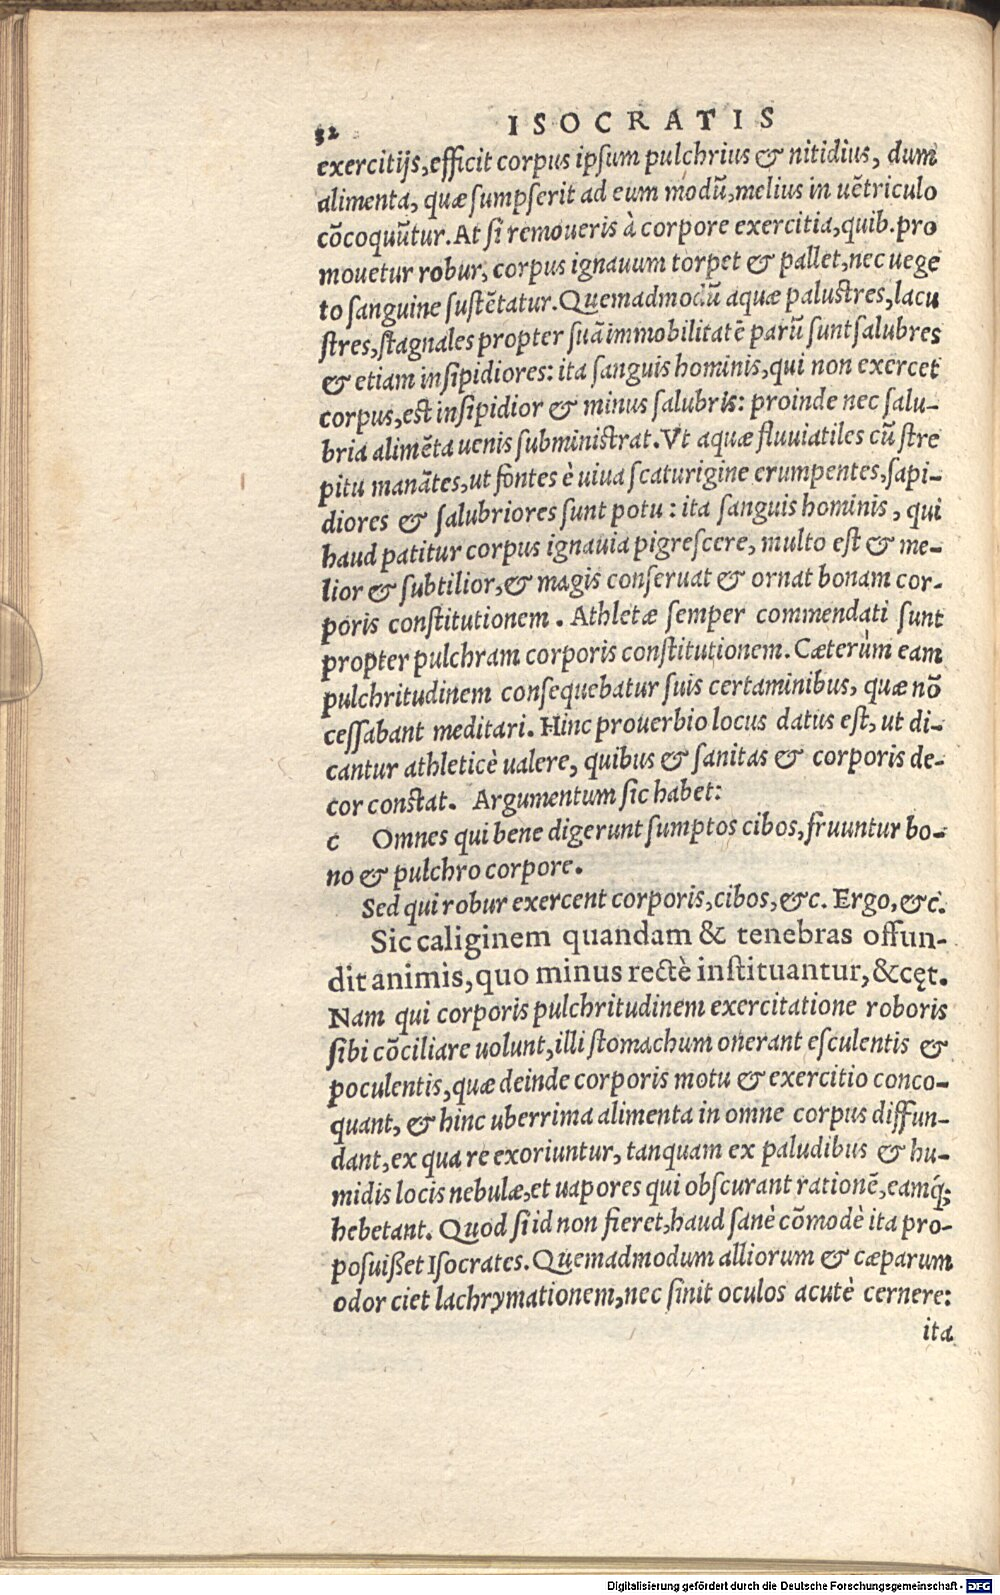 32 ISOCRATIS
exercitijs, efficit corpus ipsum pulchrius & nitidius, dum
alimenta, quæ sumpserit ad eum modū, melius in uētriculo
cōcoquūtur. At si remoueris à corpore exercitia, quib. pro
mouetur robur, corpus ignauum torpet & pallet, nec uege
to sanguine sustētatur. Quemadmodū aquæ palustres, lacu
stres, stagnales propter suā immobilitatē parū sunt salubres
& etiam insipidiores: ita sanguis hominis, qui non exercet
corpus, est insipidior & minus salubris: proinde nec salu-
bria alimēta uenis subministrat. Vt aquæ fluuiatiles cū stre
pitu manātes, ut fontes è uiua scaturigine erumpentes, sapi-
diores & salubriores sunt potu: ita sanguis hominis, qui
haud patitur corpus ignauia pigrescere, multo est & me-
lior & subtilior, & magis conseruat & ornat bonam cor-
poris constitutionem. Athletæ semper commendati sunt
propter pulchram corporis constitutionem. Cæterùm eam
pulchritudinem consequebatur suis certaminibus, quæ nō
cessabant meditari. Hinc prouerbio locus datus est, ut di-
cantur athleticè ualere, quibus & sanitas & corporis de-
cor constat. Argumentum sic habet:
c Omnes qui bene digerunt sumptos cibos, fruuntur bo-
no & pulchro corpore.
Sed qui robur exercent corporis, cibos, &c. Ergo, &c.
Sic caliginem quandam & tenebras offun-
dit animis, quo minus rectè instituantur, &cęt.
Nam qui corporis pulchritudinem exercitatione roboris
sibi cōciliare uolunt, illi stomachum onerant esculentis &
poculentis, quæ deinde corporis motu & exercitio conco-
quant, & hinc uberrima alimenta in omne corpus diffun-
dant, ex qua re exoriuntur, tanquam ex paludibus & hu-
midis locis nebulæ, et uapores qui obscurant rationē, eamq́;
hebetant. Quod si id non fieret, haud sanè cōmodè ita pro-
posuißet Isocrates. Quemadmodum alliorum & cæparum
odor ciet lachrymationem, nec sinit oculos acutè cernere:
ita
Digitalisierung gefördert durch die Deutsche Forschungsgemeinschaft - DFG